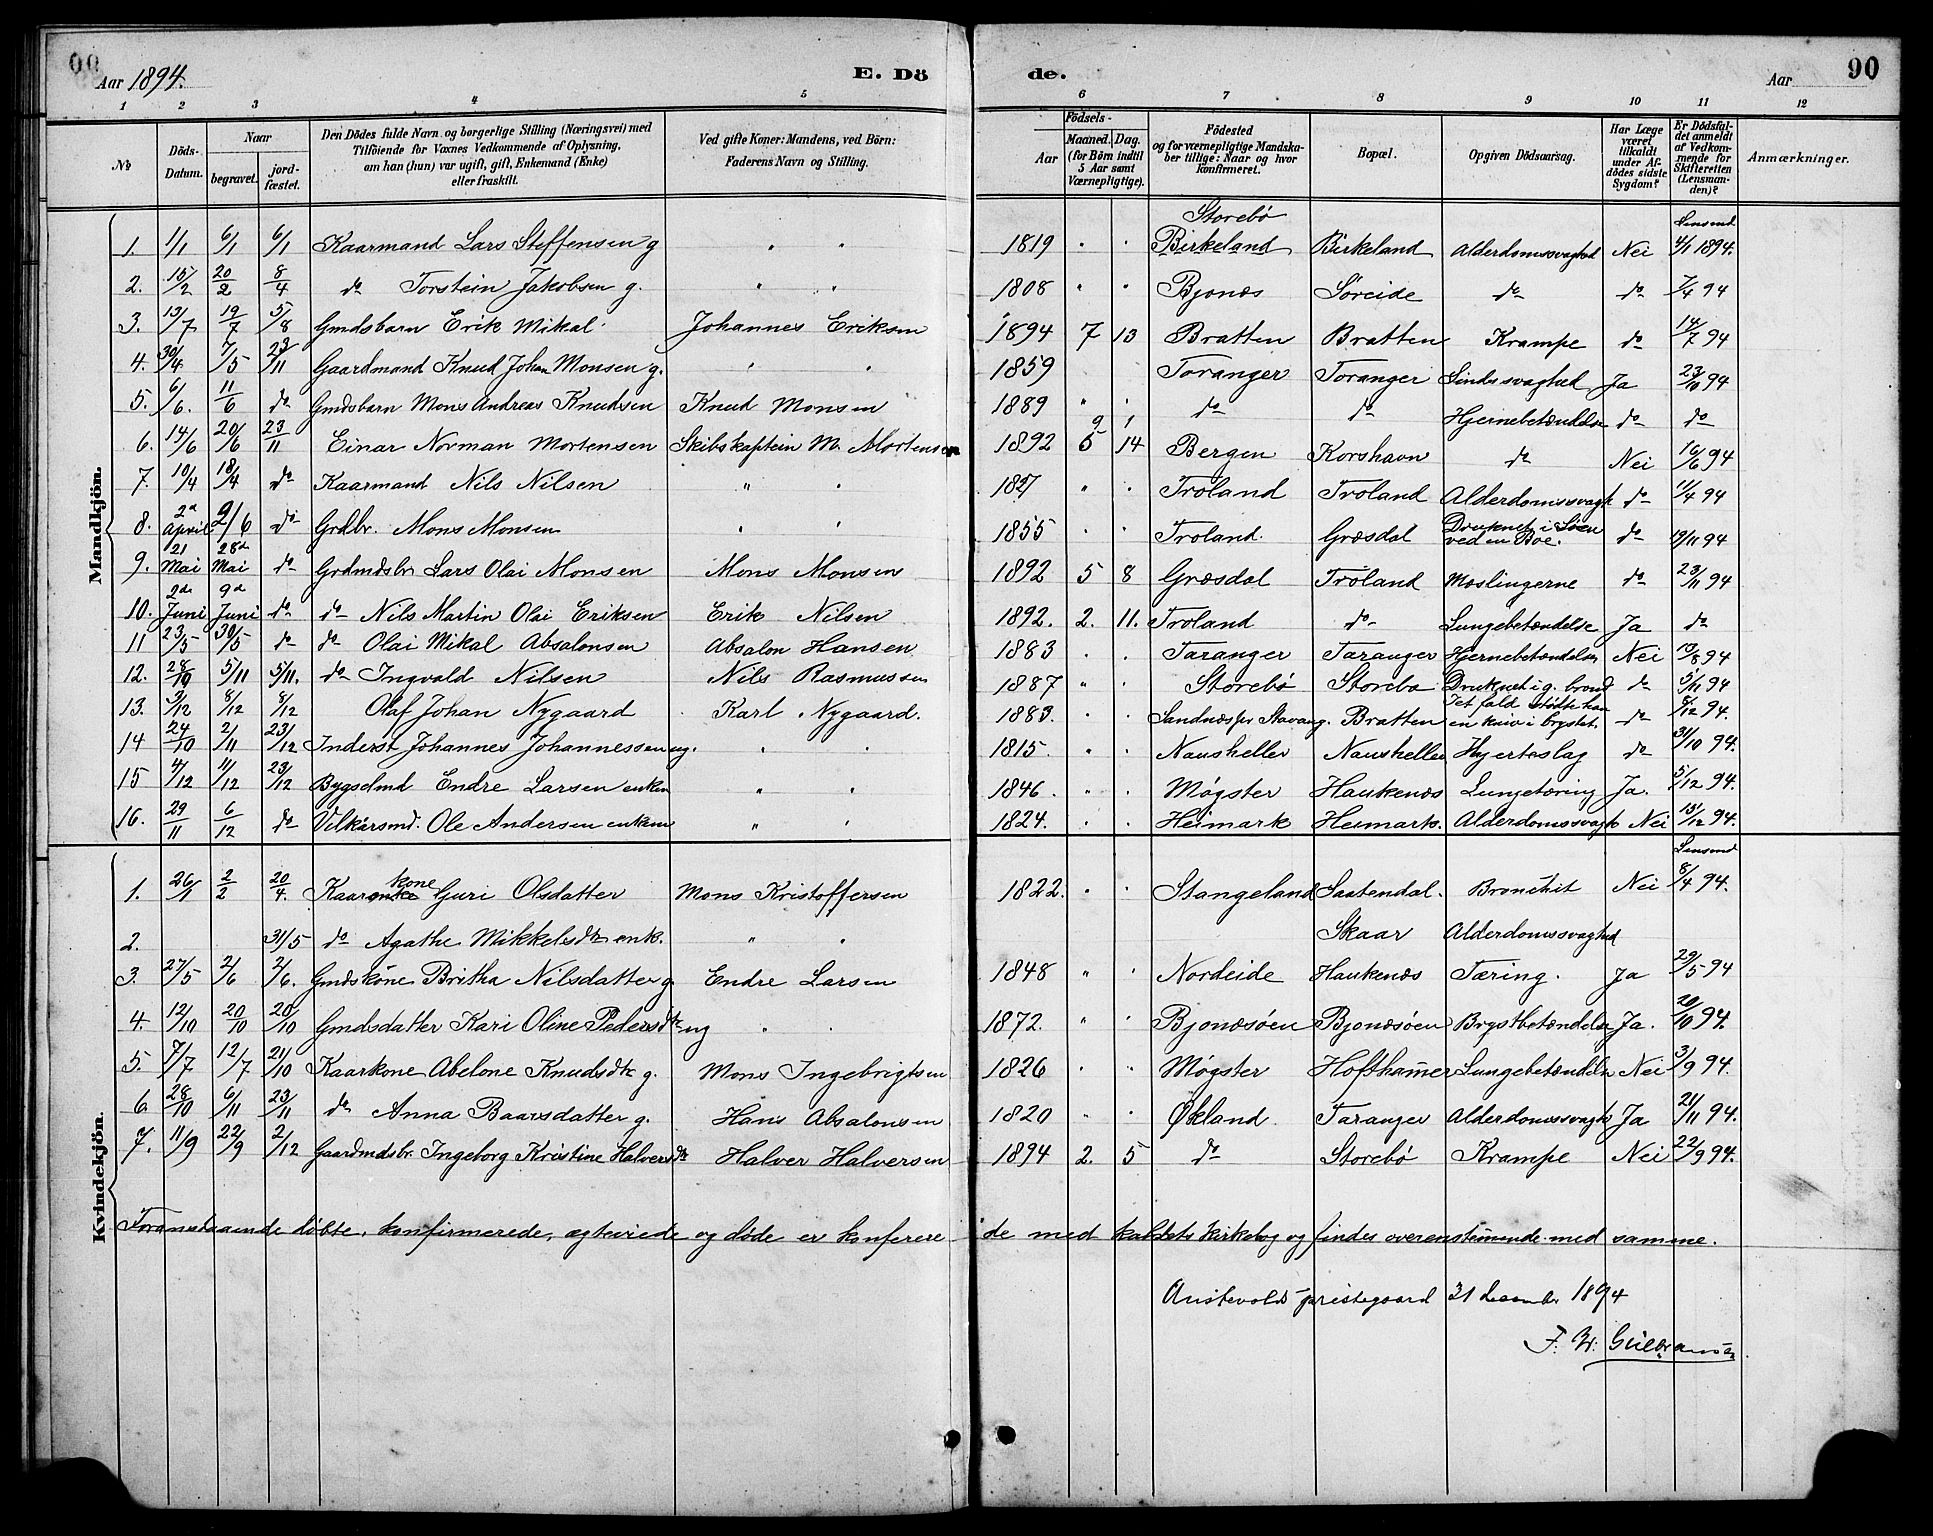 90
Aar 1894. E. Dö de. Aar 90
1 2 3 4 5 6 7 8 9 10 11 12
No Döds-Datum. Naar begravet. jord-fæstet. Den Dödes fulde Navn og borgerlige Stilling (Næringsvei) med Tilföiende for Voxnes Vedkommende af Oplysning, om han (hun) var ugift, gift, Enkemand (Enke) eller fraskilt. Ved gifte Koner: Mandens, ved Börn: Faderens Navn og Stilling. Födsels- Aar Maaned. Dag. (for Börn indtil 5 Aar samt Værnepligtige). Födested og for værnepligtige Mandskaber tillige: Naar og hvor konfirmeret. Bopæl. Opgiven Dödsaarsag. Har Læge været tilkaldt under Afdödes sidste Sygdom? Er Dödsfaldet anmeldt af Vedkommende for Skifteretten (Lensmanden)? Anmærkninger.
Mandkjön.
1. 1/1 6/1 6/1 Kaarmand Lars Steffensen g " " 1819 " " Storebö Birkeland Birkeland Alderdomssvaghed Nei Lensmd 4/1 1894.
2. 15/2 20/2 8/4 do Torstein Jakobsen g. " " 1808 " " Bjonæs Søreide do do 7/4 94
3. 13/7 19/7 5/8 Gmdsbarn Erik Mikal Johannes Eriksen 1894 7 13 Bratten Bratten Krampe do 14/7 94
4. 30/4 7/5 23/11 Gaardmand Knud Johan Monsen g. " " 1859 Toranger Toranger Sindssvaghed Ja 23/10 94
5. 6/6. 11/6 do Gmdsbarn Mons Andreas Knudsen Knud Monsen 1889 " " do do Hjernebetændelse do do
6. 14/6 20/6 23/11 Einar Norman Mortensen Skibskaptein M. Mortensen 1892 9 1 5 14 Bergen Korshavn do Nei 16/6 94
7. 10/4 18/4 do Kaarmand Nils Nilsen " " 1827 " " Troland Troland Alderdomssvagh do 11/4 94
8. 2d April 2/6 do Grdbr. Mons Monsen " " 1855 " " Troland. Græsdal Druknet i Søen ved en Boe. do 19/11 94
9. 21 Mai 28de Mai do Grdmdsbr Lars Olai Monsen Mons Monsen 1892 5 8 Græsdal Troland Mæslingerne do 23/11 94
10. 2de Juni 9de Juni do do Nils Martin Olai Eriksen Erik Nilsen 1892. 2. 11. Troland do Lungebetændelse Ja do
11 23/5 30/5 do do Olai Mikal Absalonsen Absalon Hansen 1883 . . Taranger Taranger Hjernebetændelse Nei 13/8 94
12. 28/10 5/11 5/11. do Ingvald Nilsen Nils Rasmussen 1887 " . Storebø Storebø Druknet i g. brønd do 5/11 94
13. 3/12 8/12 8/12 Olaf Johan Nygaard Karl Nygaard. 1883. . . Sandnæs pr Stavang. Bratten I et fald stödte han en kniv i brystet. do 8/12 94.
14 24/10 2/11 23/12 Inderst Johannes Johannessen ug. . . 1815 . . Nausheller Nausheller Hjerteslag do 31/10 94.
15 4/12 11/12 23/12 Bygselmd Endre Larsen enkem " " 1846. " . Møgster Haukenæs Lungetæring Ja. 5/12 94.
16. 29/11 6/12 do Vilkårsmd. Ole Andersen enkem " " 1824. . . Heimark Heimark. Alderdomssvagh Nei 15/12 94.
Kvindekjön.
1. 26/1 2/2 20/4. Kaarkone Guri Olsdatter Mons Kristoffersen 1822. " . Stangeland Saatendal. Bronchit Nei Lensmd 8/4 94.
2. 31/5 do Agathe Mikkelsdtr enk. " " Skaar Alderdomssvaghed
3. 27/5 2/6 2/6. Gmdskone Britha Nilsdatter g Endre Larsen 1848 " . Nordeide Haukenæs Tæring. Ja 29/5 94
4. 12/10 20/10 20/10 Gmdsdatter Kari Oline Pedersdtr ug . . 1872. " . Bjonæsøen Bjonæsøen Brystbetændelse Ja. 20/10 94.
5. 7/7 12/7 21/10 Kaarkone Abelone Knudsdtr g. Mons Ingebrigtsen 1826 . . Møgster Hofthamer Lungebetændelse Nei 3/9 94.
6. 28/10 6/11 23/11 do Anna Baarsdatter g. Hans Absalonsen 1820 . . Økland. Taranger Alderdomssvagh Ja 21/11 94.
7. 11/9 22/9 2/12 Gaardmdsbr. Ingeborg Kristine Halversdtr Halver Halversen 1894 2. 5 do Storebø Krampe Nei 22/9 94.
Foranstaaende døbte, konfirmerede, ægteviede og døde er konferere de med kaldets kirkebog og findes overenstemmende med samme.
Austevolds prestegaard 31 december 1894
F. W. Guldbransen